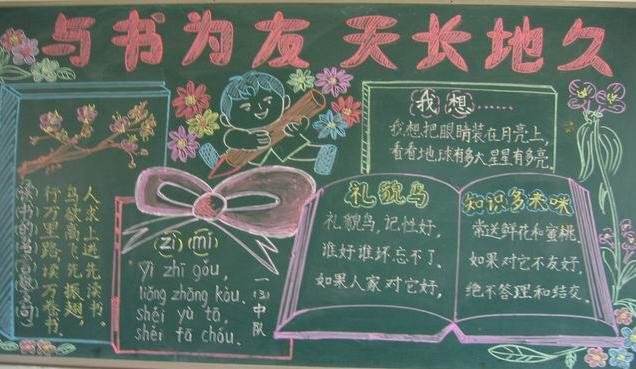 与书为友 天长地久
读书的名言警句
行万里路读万卷书.
鸟欲高飞先振翅,
人求上进先读书.
(zì)(mí)
yì zhī gǒu,
liǎng zhāng kǒu.
shéi yù tā,
shéi fā chóu.
一(3)中队
我想……
我想把眼睛装在月亮上,
看看地球有多大星星有多亮.
礼貌鸟
礼貌鸟,记性好,
谁好谁坏忘不了.
如果人家对它好,
知识多来咪
常送鲜花和蜜桃.
如果对它不友好.
绝不答理和结交.